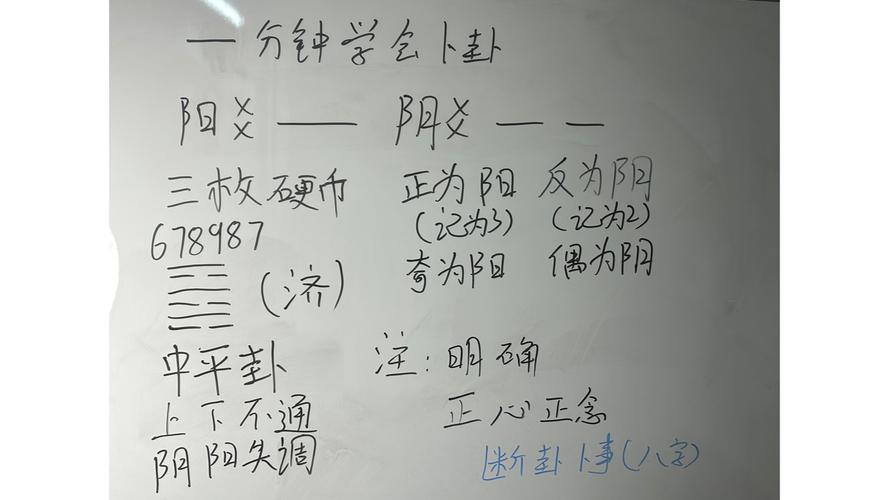 一分钟学会卜卦
阳爻 —— 阴爻 — —
三枚硬币 正为阳 反为阴
(记为3) (记为2)
678987
奇为阳 偶为阴
(济)
中平卦 注:明确
上下不通 正心正念
阴阳失调 断卦卜事(八字)